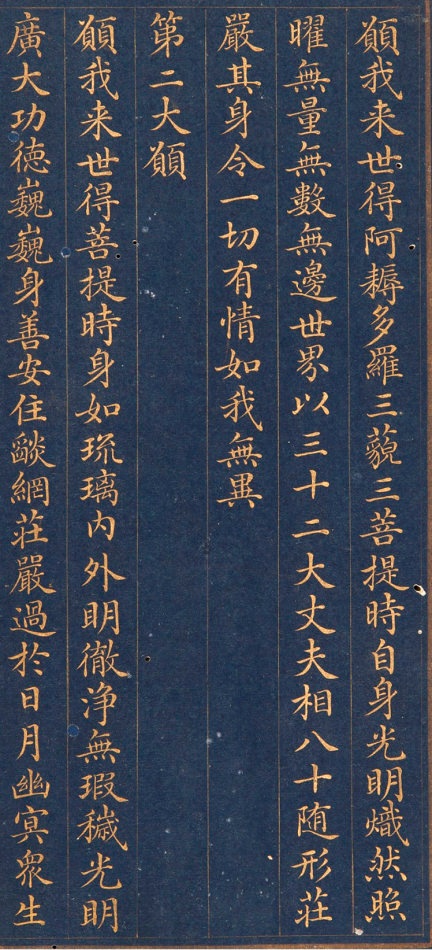 願我来世得阿耨多羅三藐三菩提時自身光明熾然照
曜無量無數無邊世界以三十二大丈夫相八十随形莊
嚴其身令一切有情如我無異
第二大願
願我来世得菩提時身如琉璃内外明徹浄無瑕穢光明
廣大功徳巍巍身善安住𦦨網莊嚴過於日月幽冥衆生